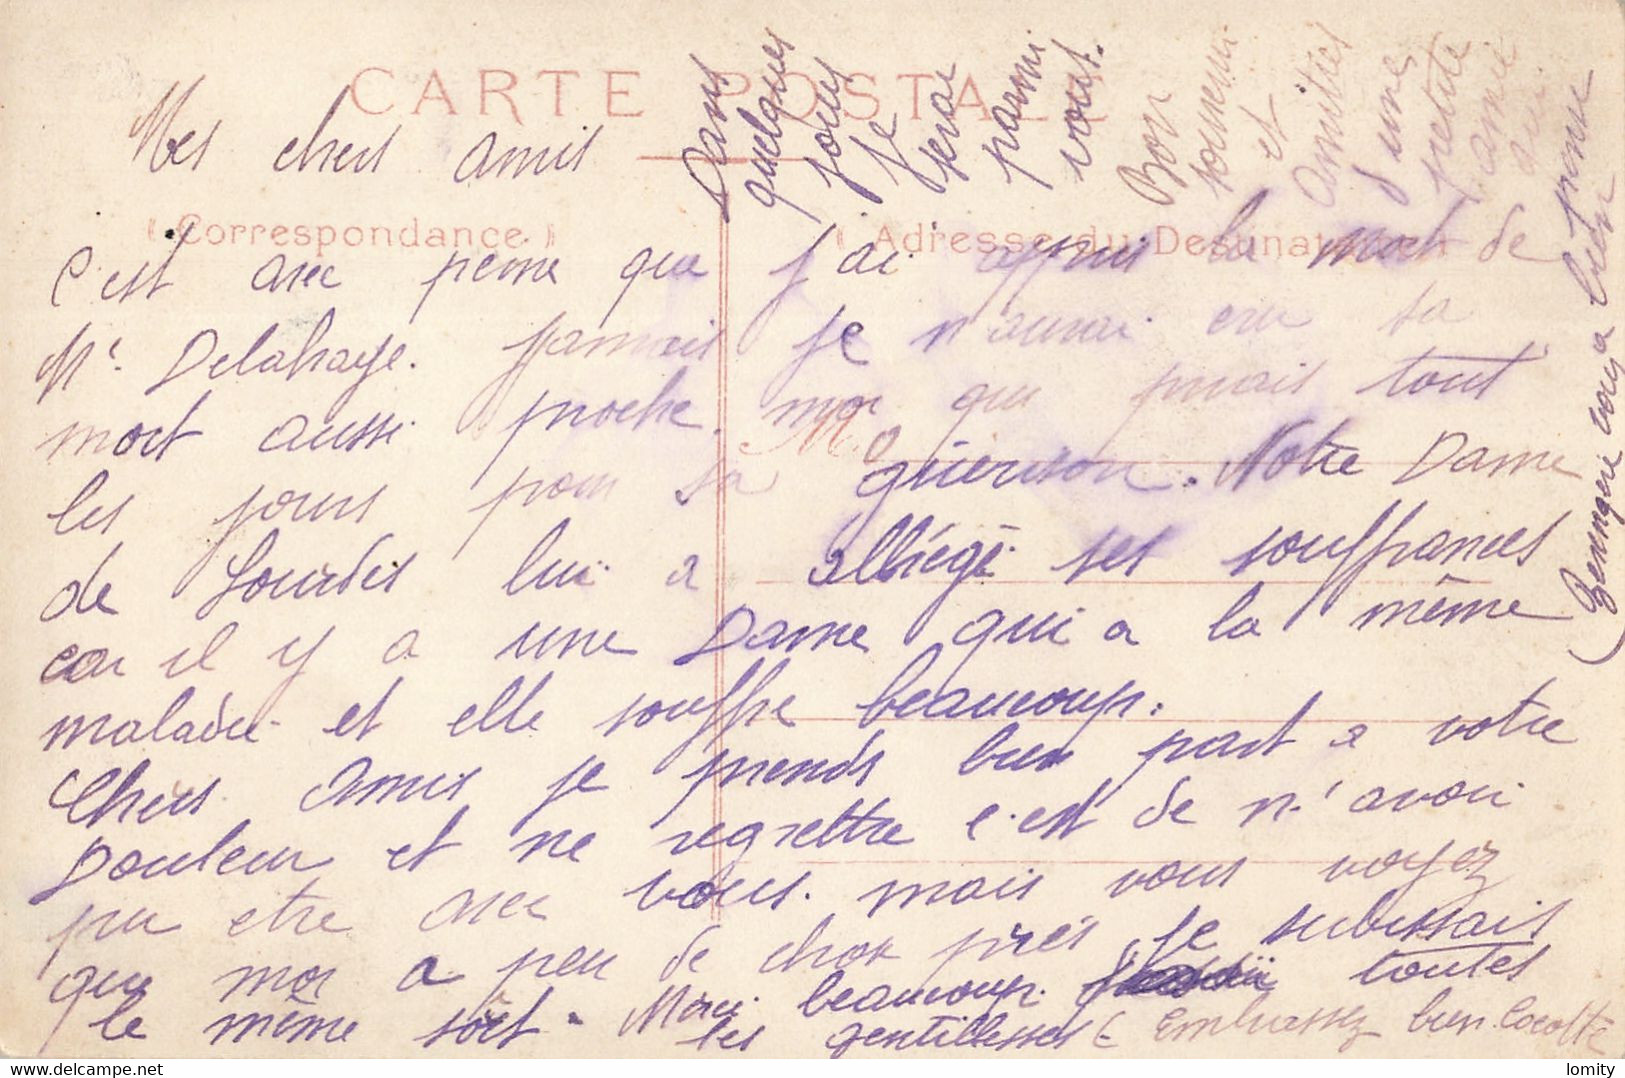 CARTE POSTALE
Correspondance
Adresse du Destinataire
Mes chers amis
C'est avec peine que j'ai appris la mort de
Mr. Delahaye. Jamais je n'aurai cru sa
mort aussi proche, moi qui priais tout
les jours pour sa guérison. Notre Dame
de Lourdes lui a alliégé ses souffrances
car il y a une Dame qui a la même
maladie et elle souffre beaucoup.
Chers amis je prends bien part a votre
Douleur et ne regrette c'est de n'avoir
pu etre avec vous. mais vous voyez
que moi a peu de chose près je subissais
le même sort. Merci beaucoup toutes
les gentillesses (Embrassez bien Cocotte
Dans
quelques
jours
je
serai
parmi
vous.
Bon
souvenir
et
Amitiés
d'une
petite
amie
qui
pense
bien
a vous
Berengere
M
lomity